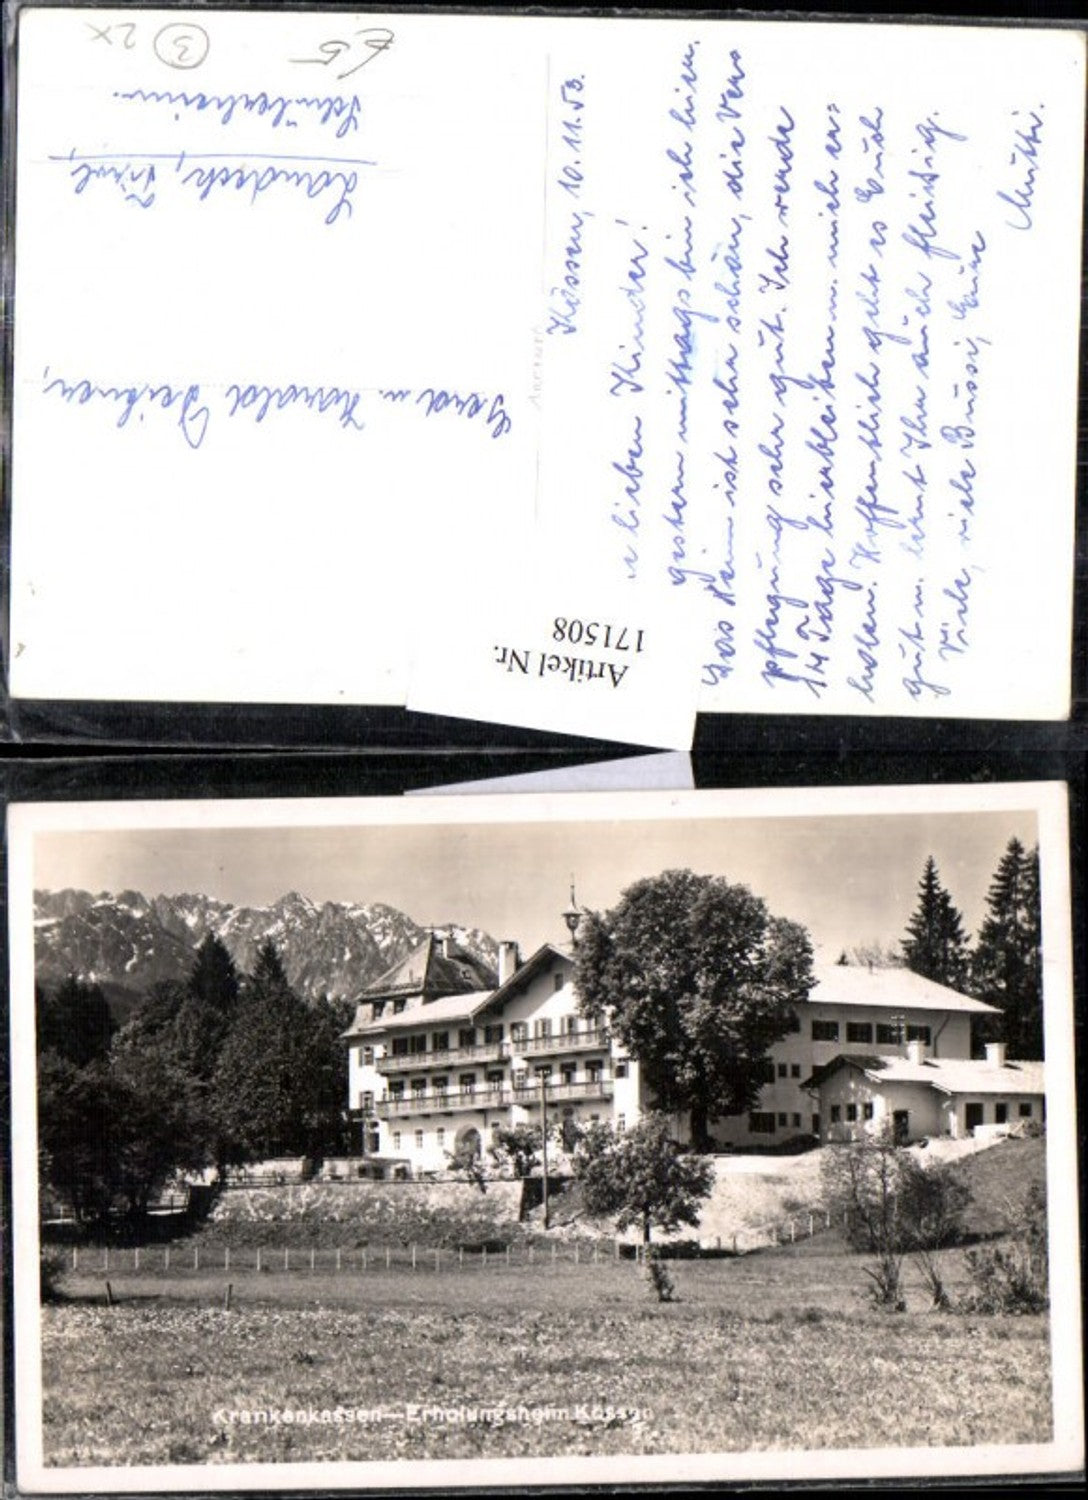 € 5
3
2x
Gerd u. Harald
Landeck, Tirol
Schülerheim.
Kössen, 10.11.53.
lieben Kinder!
Gestern mittags bin ich hier.
Das Heim ist sehr schön, die Ver
pflegung sehr gut. Ich werde
14 Tage hierbleiben u. mich er=
holen. Hoffentlich geht es Euch
gut u. lernt Ihr auch fleißig.
Viele, viele Bussi, Eure
Mutti.
Artikel Nr.
171508
Krankenkassen—Erholungsheim Kössen